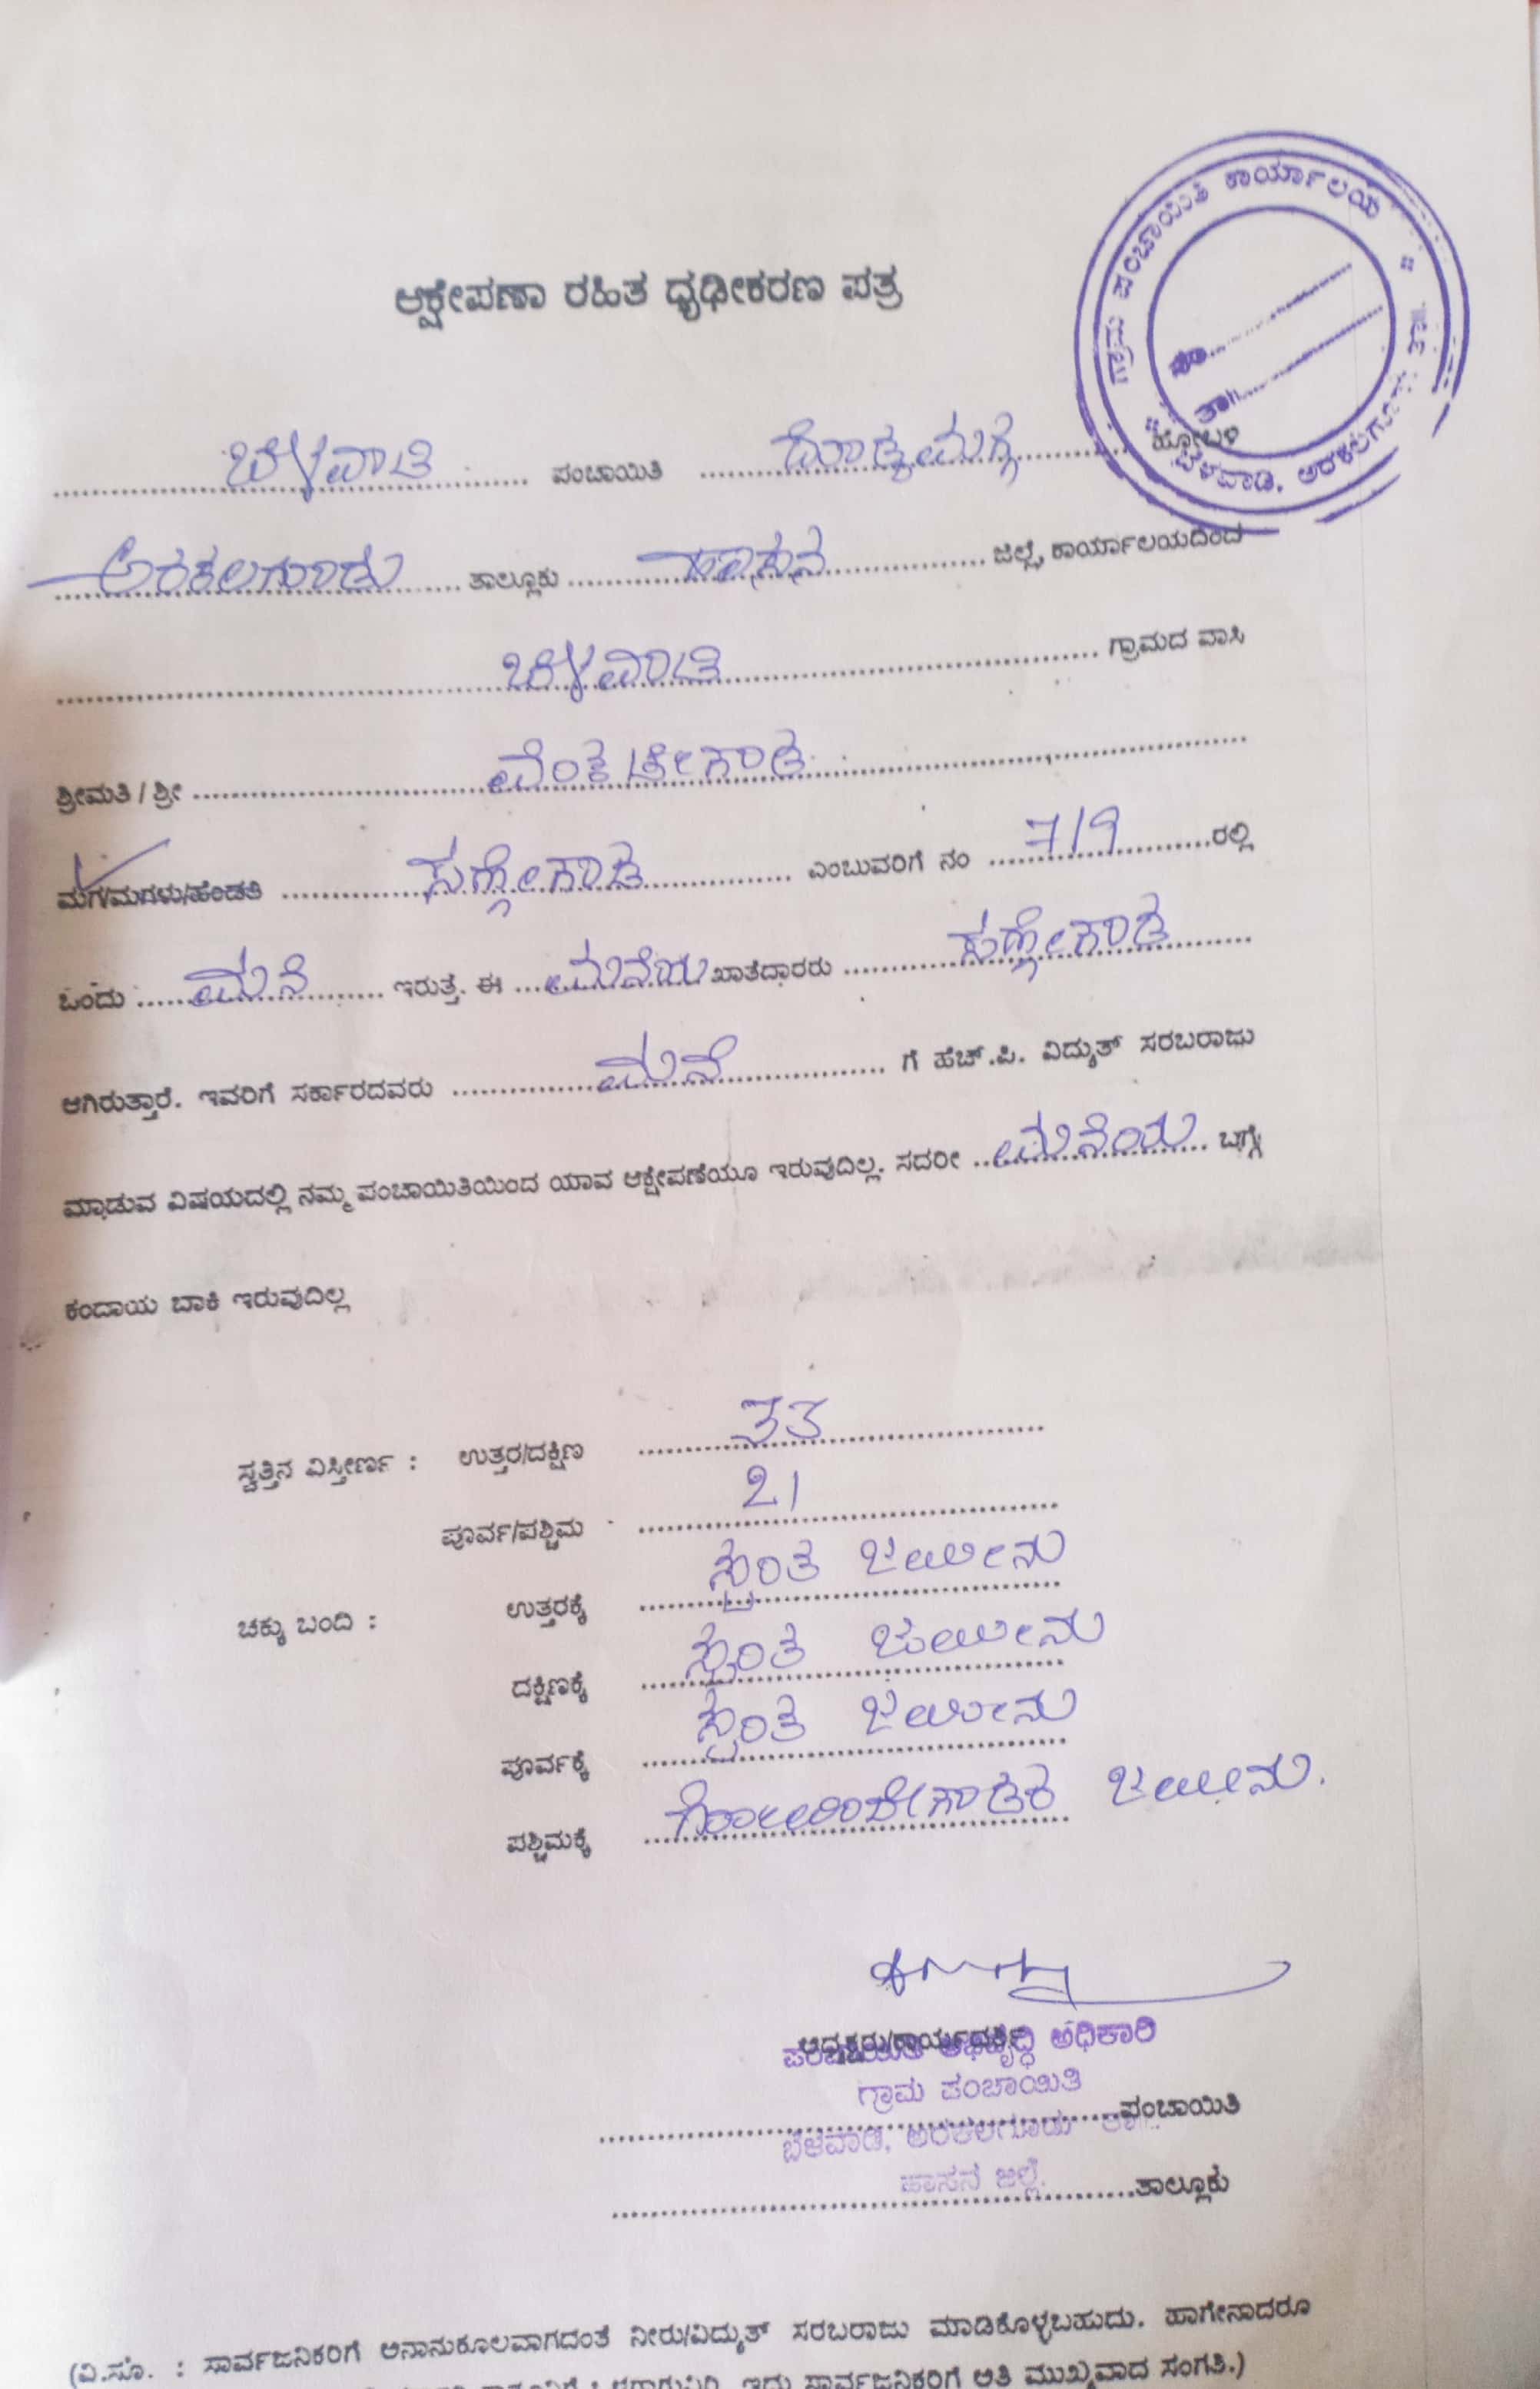 ಗ್ರಾಮ ಪಂಚಾಯಿತಿ ಕಾರ್ಯಾಲಯ
ನಂ
ತಾ||
ಬೆಳವಾಡಿ, ಅರಕಲಗೂಡು
ಆಕ್ಷೇಪಣಾ ರಹಿತ ಧೃಢೀಕರಣ ಪತ್ರ
ಬೆಳವಾಡಿ ಪಂಚಾಯಿತಿ ದೊಡ್ಡಮಗ್ಗೆ ಹೋಬಳಿ
ಅರಕಲಗೂಡು ತಾಲ್ಲೂಕು ಹಾಸನ ಜಿಲ್ಲೆ, ಕಾರ್ಯಾಲಯದಿಂದ
ಬೆಳವಾಡಿ ಗ್ರಾಮದ ವಾಸಿ
ಶ್ರೀಮತಿ / ಶ್ರೀ ವೆಂಕಟೇಗೌಡ
ಮಗ/ಮಗಳು/ಹೆಂಡತಿ ಸಣ್ಣೇಗೌಡ ಎಂಬುವರಿಗೆ ನಂ 719 ರಲ್ಲಿ
ಒಂದು ಮನೆ ಇರುತ್ತೆ. ಈ ಮನೆಯ ಖಾತೆದಾರರು ಸಣ್ಣೇಗೌಡ
ಆಗಿರುತ್ತಾರೆ. ಇವರಿಗೆ ಸರ್ಕಾರದವರು ಮನೆ ಗೆ ಹೆಚ್.ಪಿ. ವಿದ್ಯುತ್ ಸರಬರಾಜು
ಮಾಡುವ ವಿಷಯದಲ್ಲಿ ನಮ್ಮ ಪಂಚಾಯಿತಿಯಿಂದ ಯಾವ ಆಕ್ಷೇಪಣೆಯೂ ಇರುವುದಿಲ್ಲ. ಸದರೀ ಮನೆಯ ಬಗ್ಗೆ
ಕಂದಾಯ ಬಾಕಿ ಇರುವುದಿಲ್ಲ
ಸ್ವತ್ತಿನ ವಿಸ್ತೀರ್ಣ : ಉತ್ತರ/ದಕ್ಷಿಣ 33
ಪೂರ್ವ/ಪಶ್ಚಿಮ 21
ಚಕ್ಕು ಬಂದಿ : ಉತ್ತರಕ್ಕೆ ಸ್ವಂತ ಜಮೀನು
ದಕ್ಷಿಣಕ್ಕೆ ಸ್ವಂತ ಜಮೀನು
ಪೂರ್ವಕ್ಕೆ ಸ್ವಂತ ಜಮೀನು
ಪಶ್ಚಿಮಕ್ಕೆ ಜಮೀನು.
ಅಧ್ಯಕ್ಷರು/ಕಾರ್ಯದರ್ಶಿ
ಪಂಚಾಯಿತಿ ಅಭಿವೃದ್ಧಿ ಅಧಿಕಾರಿ
ಗ್ರಾಮ ಪಂಚಾಯಿತಿ
ಪಂಚಾಯಿತಿ
ಬೆಳವಾಡಿ, ಅರಕಲಗೂಡು ತಾ||.
ಹಾಸನ ಜಿಲ್ಲೆ.
ತಾಲ್ಲೂಕು
(ವಿ.ಸೂ. : ಸಾರ್ವಜನಿಕರಿಗೆ ಅನಾನುಕೂಲವಾಗದಂತೆ ನೀರು/ವಿದ್ಯುತ್ ಸರಬರಾಜು ಮಾಡಿಕೊಳ್ಳಬಹುದು. ಹಾಗೇನಾದರೂ
ಇದು ಸಾರ್ವಜನಿಕರಿಗೆ ಅತಿ ಮುಖ್ಯವಾದ ಸಂಗತಿ.)